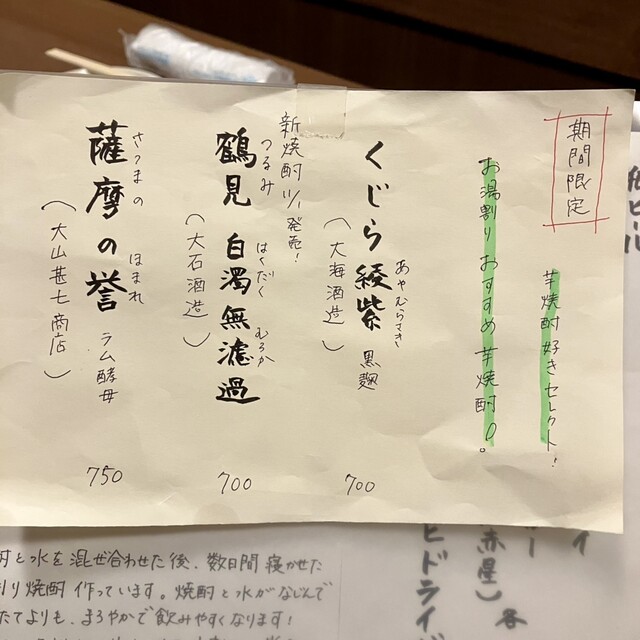 期間限定
芋焼酎好きセレクト!
お湯割りおすすめ芋焼酎♪。
くじら綾紫 黒麹
あやむらさき
(大海酒造)
700
新焼酎 発売!
鶴見 白濁無濾過
つるみ はくだく むろか
(大石酒造)
700
薩摩の誉 ラム酵母
さつまの ほまれ
(大山甚七商店)
750
と水を混ぜ合わせた後、数日間寝かせた
割り焼酎作っています。焼酎と水がなじんで
たてよりも、まろやかで飲みやすくなります!
赤星) 各
ヒドライ